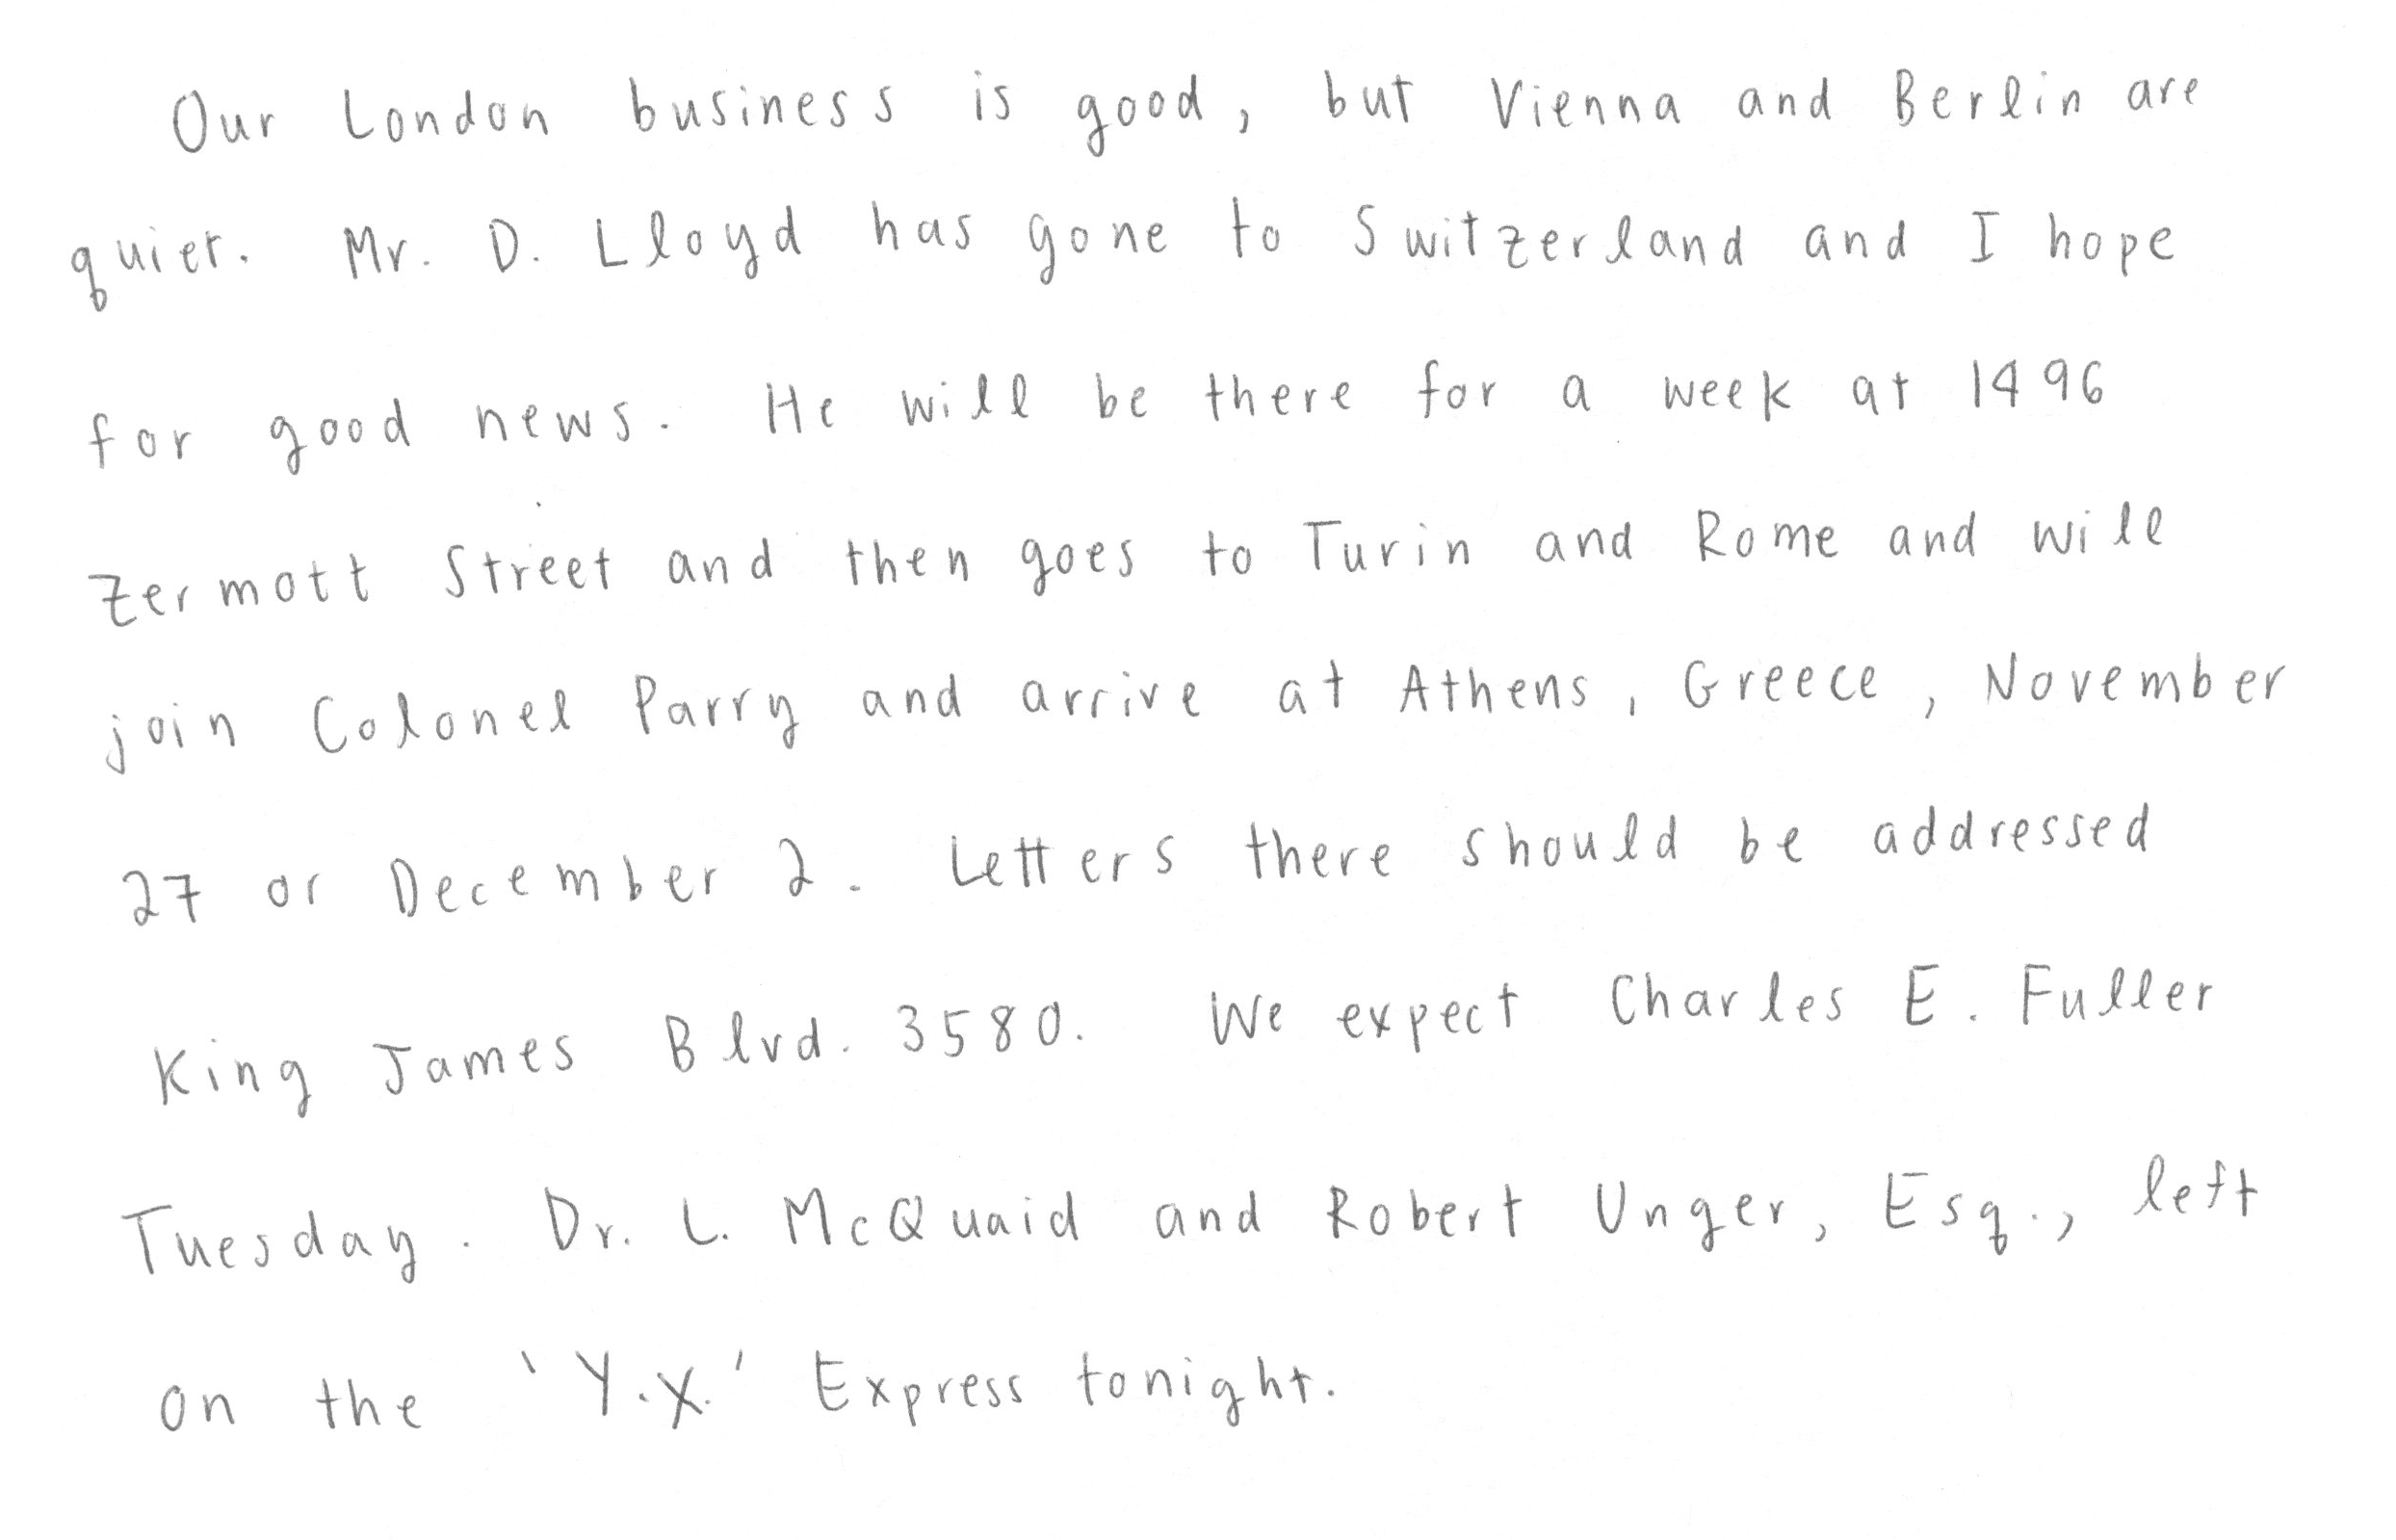 Our London business is good, but Vienna and Berlin are
quiet. Mr. D. Lloyd has gone to Switzerland and I hope
for good news. He will be there for a week at 1496
Zermott Street and then goes to Turin and Rome and will
join Colonel Parry and arrive at Athens, Greece, November
27 or December 2. Letters there should be addressed
King James Blvd. 3580. We expect Charles E. Fuller
Tuesday. Dr. L. McQuaid and Robert Unger, Esq., left
on the 'Y.X.' Express tonight.